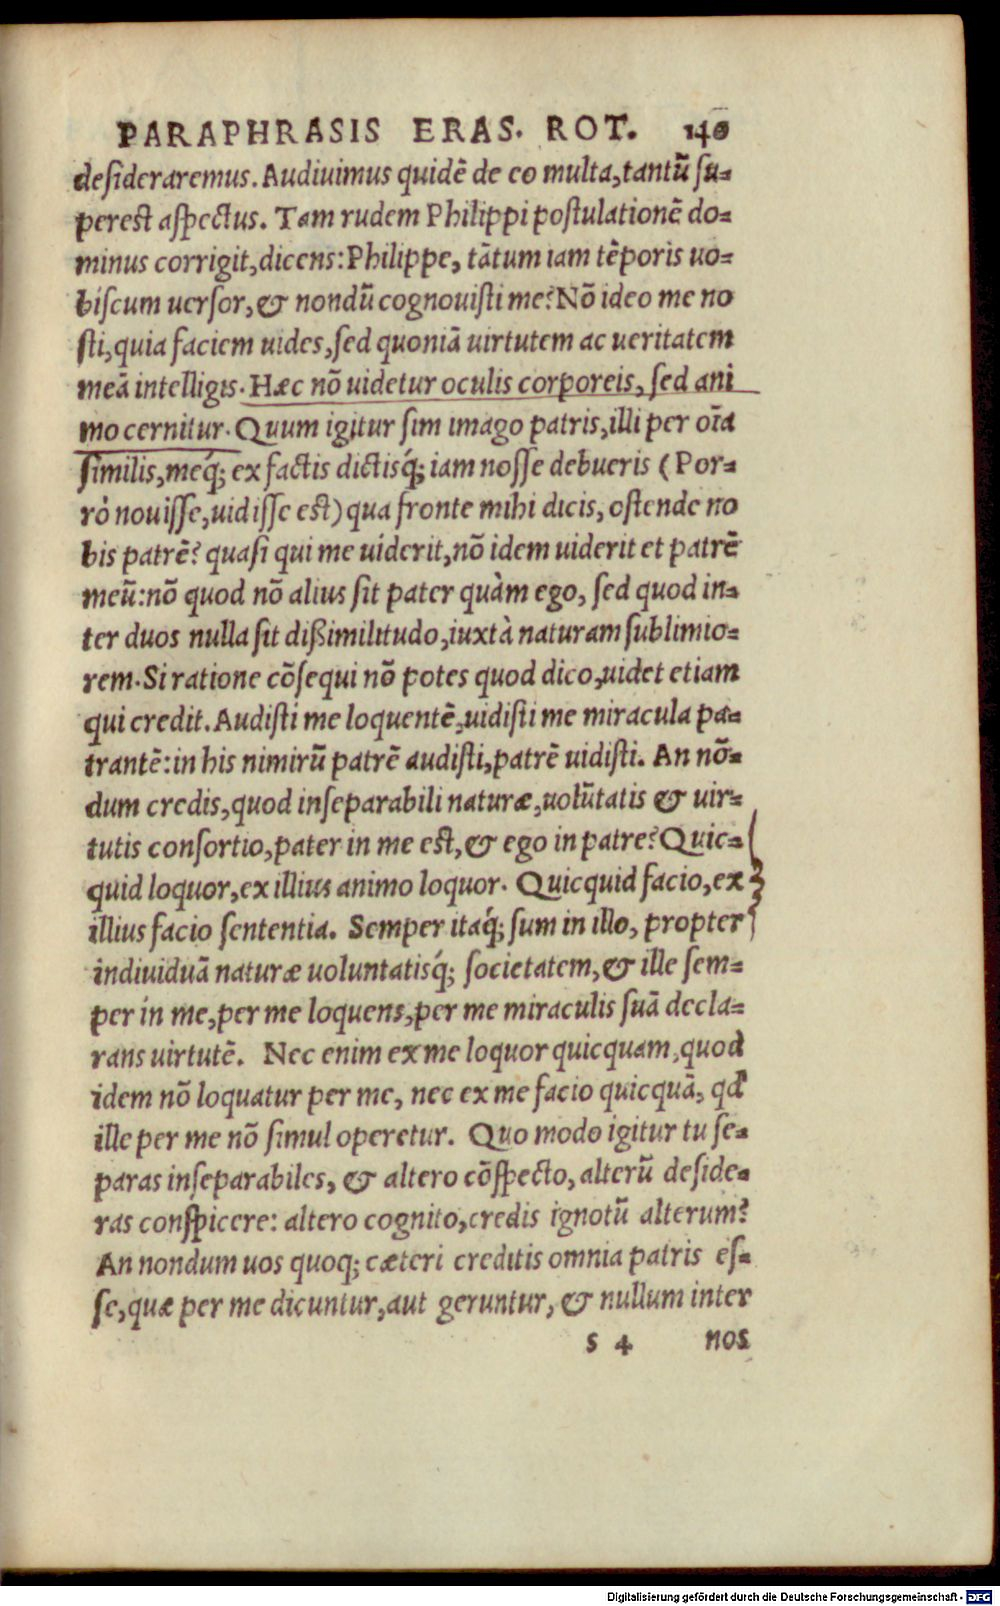 PARAPHRASIS ERAS. ROT. 140
desideraremus. Audiuimus quidē de eo multa, tantū su-
perest aspectus. Tam rudem Philippi postulationē do-
minus corrigit, dicens: Philippe, tātum iam tēporis uo-
biscum uersor, & nondū cognouisti me? Nō ideo me no
sti, quia faciem uides, sed quoniā uirtutem ac ueritatem
meā intelligis. Hæc nō uidetur oculis corporeis, sed ani
mo cernitur. Quum igitur sim imago patris, illi per oīa
similis, meq́; ex factis dictisq́; iam nosse debueris (Por-
rò nouisse, uidisse est) qua fronte mihi dicis, ostende no
bis patrē? quasi qui me uiderit, nō idem uiderit et patrē
meū: nō quod nō alius sit pater quàm ego, sed quod in-
ter duos nulla sit dißimilitudo, iuxtà naturam sublimio-
rem. Si ratione cōsequi nō potes quod dico, uidet etiam
qui credit. Audisti me loquentē, uidisti me miracula pa-
trantē: in his nimirū patrē audisti, patrē uidisti. An nō-
dum credis, quod inseparabili naturæ, uolūtatis & uir-
tutis consortio, pater in me est, & ego in patre? Quic-
quid loquor, ex illius animo loquor. Quicquid facio, ex
illius facio sententia. Semper itaq́; sum in illo, propter
indiuiduā naturæ uoluntatisq́; societatem, & ille sem-
per in me, per me loquens, per me miraculis suā decla-
rans uirtutē. Nec enim ex me loquor quicquam, quod
idem nō loquatur per me, nec ex me facio quicquā, qd
ille per me nō simul operetur. Quo modo igitur tu se-
paras inseparabiles, & altero cōspecto, alterū deside-
ras conspicere: altero cognito, credis ignotū alterum?
An nondum uos quoq; cæteri creditis omnia patris es-
se, quæ per me dicuntur, aut geruntur, & nullum inter
s 4 nos
Digitalisierung gefördert durch die Deutsche Forschungsgemeinschaft - DFG